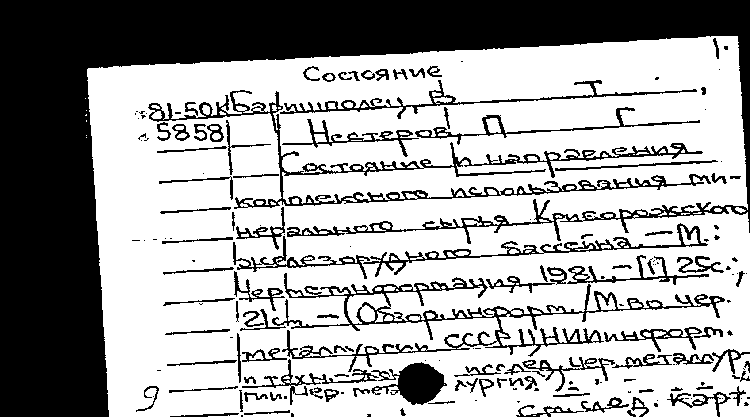 1.
Состояние
81-50К Баришполец, В Т. ,
5858 Нестеров, П Г
Состояние и направления
комплексного использования ми-
нерального сырья Криворожского
железорудного бассейна. — М.:
Черметинформация, 1981. — [1], 25с.;
21см. — (Обзор. информ. / М-во чер.
металлургии СССР, ЦНИИинформ.
и техн.-экон. исслед. чер. металлур-
гии. Чер. металлургия).
9 См. след. карт.